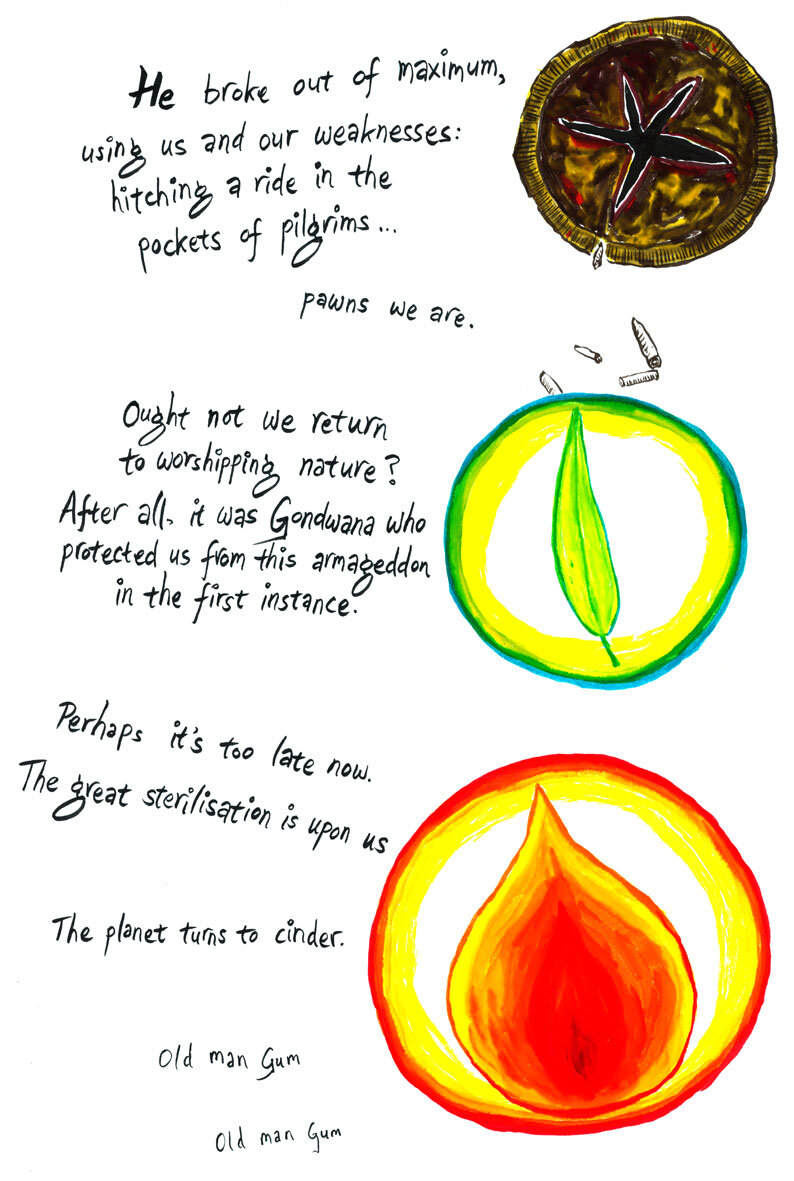 He broke out of maximum,
using us and our weaknesses:
hitching a ride in the
pockets of pilgrims...
pawns we are.
Ought not we return
to worshipping nature?
After all, it was Gondwana who
protected us from this armageddon
in the first instance.
Perhaps it's too late now.
The great sterilisation is upon us
The planet turns to cinder.
Old man Gum
Old man Gum